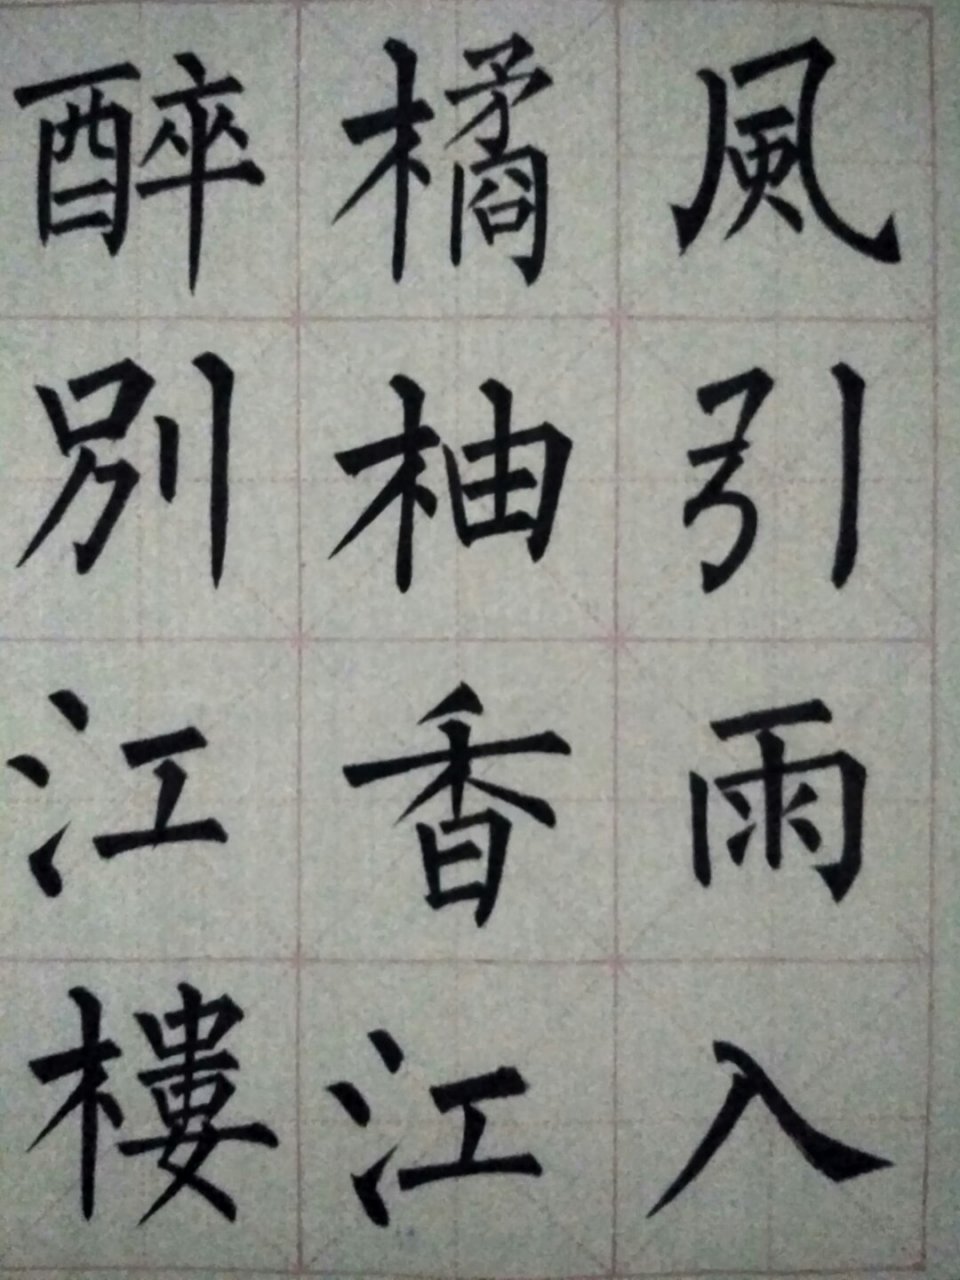 風引雨入
橘柚香江
醉別江樓